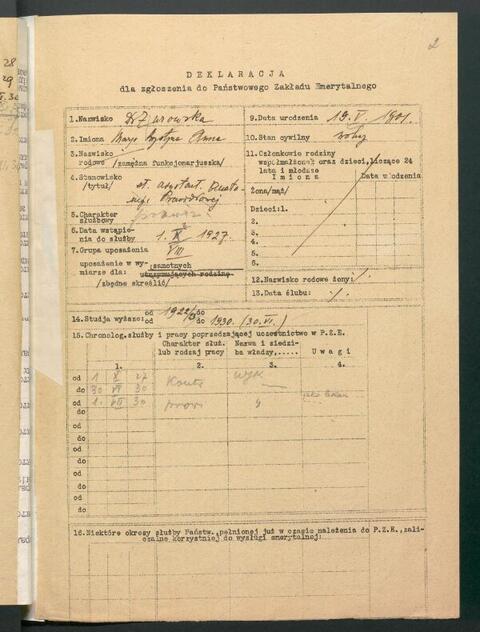 2
DEKLARACJA
dla zgłoszenia do Państwowego Zakładu Emerytalnego
1.Nazwisko
2.Imiona Anna
3.Nazwisko rodowe /zamężna funkcjonarjuszka/
4.Stanowisko /tytuł/ st. asystent.
5.Charakter służbowy
6.Data wstąpienia do służby 1. X 1927.
7.Grupa uposażenia VIII
uposażenie w wymiarze dla: /samotnych
utrzymujących rodzinę
/zbędne skreślić/
9.Data urodzenia 19. V. 1901.
10.Stan cywilny wolny
11.Członkowie rodziny
współmałżonek oraz dzieci, liczące 24
lata i młodsze
Imiona Data urodzenia
Żona/mąż/
Dzieci:1.
2.
3.
4.
5.
6.
12.Nazwisko rodowe żony ./.
13.Data ślubu: ./.
14.Studja wyższe: od od do do 1930. (30.VI.)
15.Chronolog.służby i pracy poprzedzającej uczestnictwo w P.Z.E.
1. Charakter służ. lub rodzaj pracy 2. Nazwa i siedziba władzy,..... 3. Uwagi 4.
od 1 X 27
do 30 VI 30
od 1. VII 30
do
od
do
od
do
od
do
od
do
od
do
16.Niektóre okresy służby Państw., pełnionej już w czasie należenia do P.Z.E., zaliczalne korzystniej do wysługi emerytalnej:
28
29